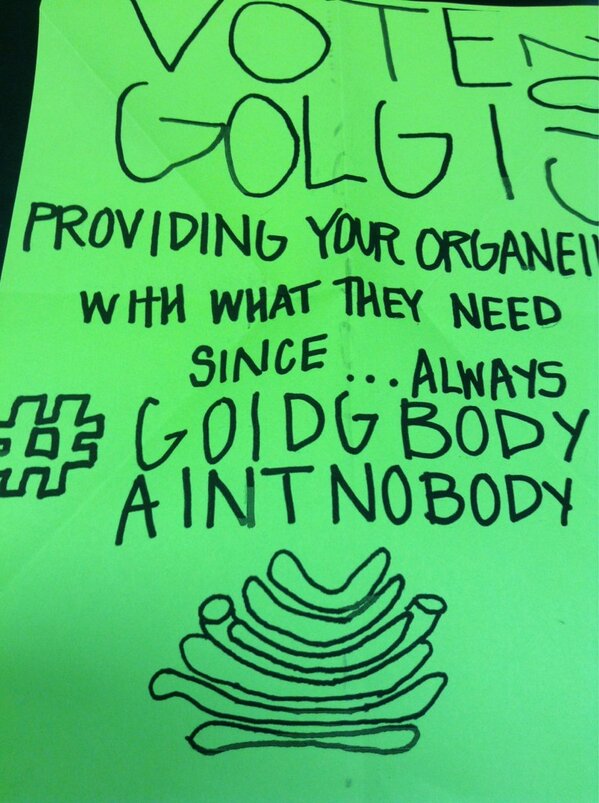 VOTE
GOLGI
PROVIDING YOUR ORGANELL
WITH WHAT THEY NEED
SINCE ... ALWAYS
# GOIDG BODY
AINT NOBODY